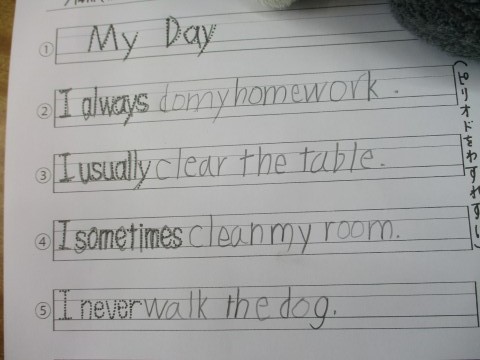 ① My Day
② I always do my homework.
③ I usually clear the table.
④ I sometimes clean my room.
⑤ I never walk the dog.